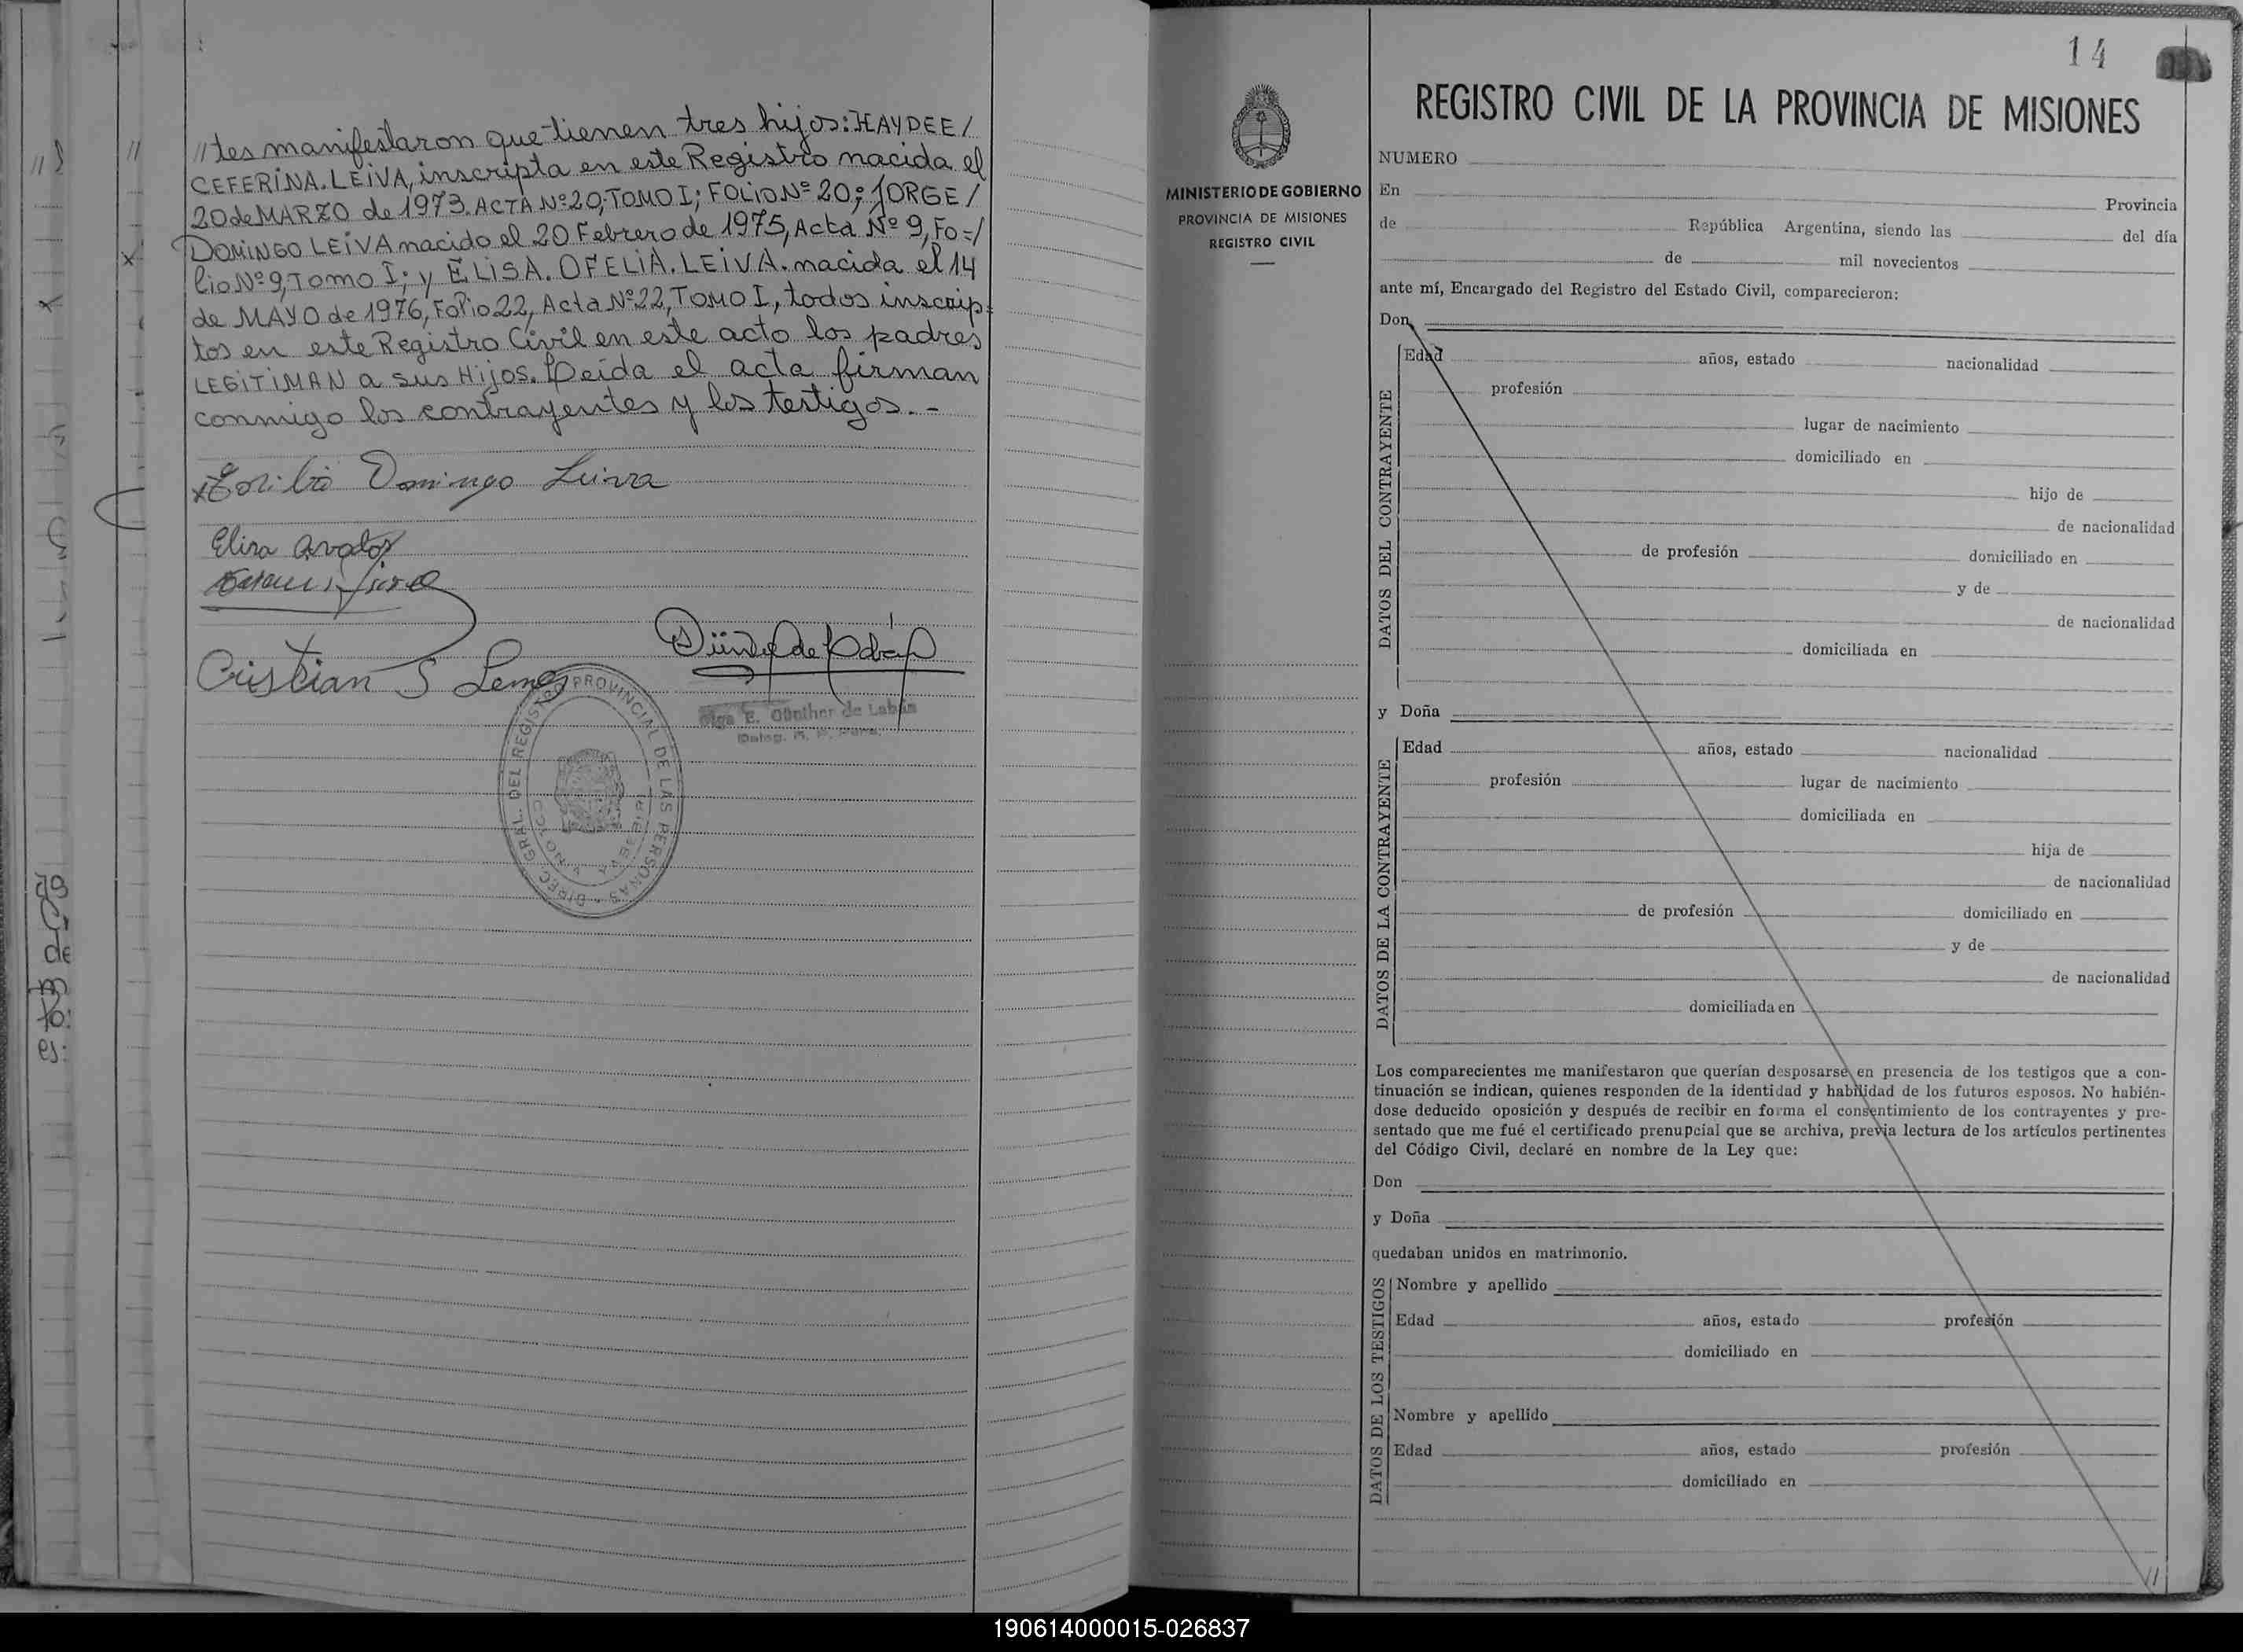 //tes manifestaron que tienen tres hijos: HAYDEE/
CEFERINA. LEIVA, inscripta en este Registro nacida el
20 de MARZO de 1973. ACTA Nº 20, TOMO I; FOLIO Nº 20; JORGE/
DOMINGO LEIVA nacido el 20 Febrero de 1975, Acta Nº 9, Fo=/
lio Nº 9, Tomo I; y ELISA. OFELIA. LEIVA. nacida el 14
de MAYO de 1976, Folio 22, Acta Nº 22, TOMO I, todos inscrip=
tos en este Registro Civil en este acto los padres
LEGITIMAN a sus Hijos. Leida el acta firman
conmigo los contrayentes y los testigos.-
Domingo Leiva
Elisa Avalos
Cristian S Lemes
Olga E. Günther de Labán
DIREC. GRAL. DEL REGISTRO PROVINCIAL DE LAS PERSONAS
14
REGISTRO CIVIL DE LA PROVINCIA DE MISIONES
MINISTERIO DE GOBIERNO
PROVINCIA DE MISIONES
REGISTRO CIVIL
NUMERO
En Provincia
de República Argentina, siendo las del día
de mil novecientos
ante mí, Encargado del Registro del Estado Civil, comparecieron:
Don
DATOS DEL CONTRAYENTE
Edad años, estado nacionalidad
profesión
lugar de nacimiento
domiciliado en
hijo de
de nacionalidad
de profesión domiciliado en
y de
de nacionalidad
domiciliada en
y Doña
DATOS DE LA CONTRAYENTE
Edad años, estado nacionalidad
profesión lugar de nacimiento
domiciliada en
hija de
de nacionalidad
de profesión domiciliado en
y de
de nacionalidad
domiciliada en
Los comparecientes me manifestaron que querían desposarse en presencia de los testigos que a con-
tinuación se indican, quienes responden de la identidad y habilidad de los futuros esposos. No habién-
dose deducido oposición y después de recibir en forma el consentimiento de los contrayentes y pre-
sentado que me fué el certificado prenupcial que se archiva, previa lectura de los artículos pertinentes
del Código Civil, declaré en nombre de la Ley que:
Don
y Doña
quedaban unidos en matrimonio.
DATOS DE LOS TESTIGOS
Nombre y apellido
Edad años, estado profesión
domiciliado en
Nombre y apellido
Edad años, estado profesión
domiciliado en
190614000015-026837